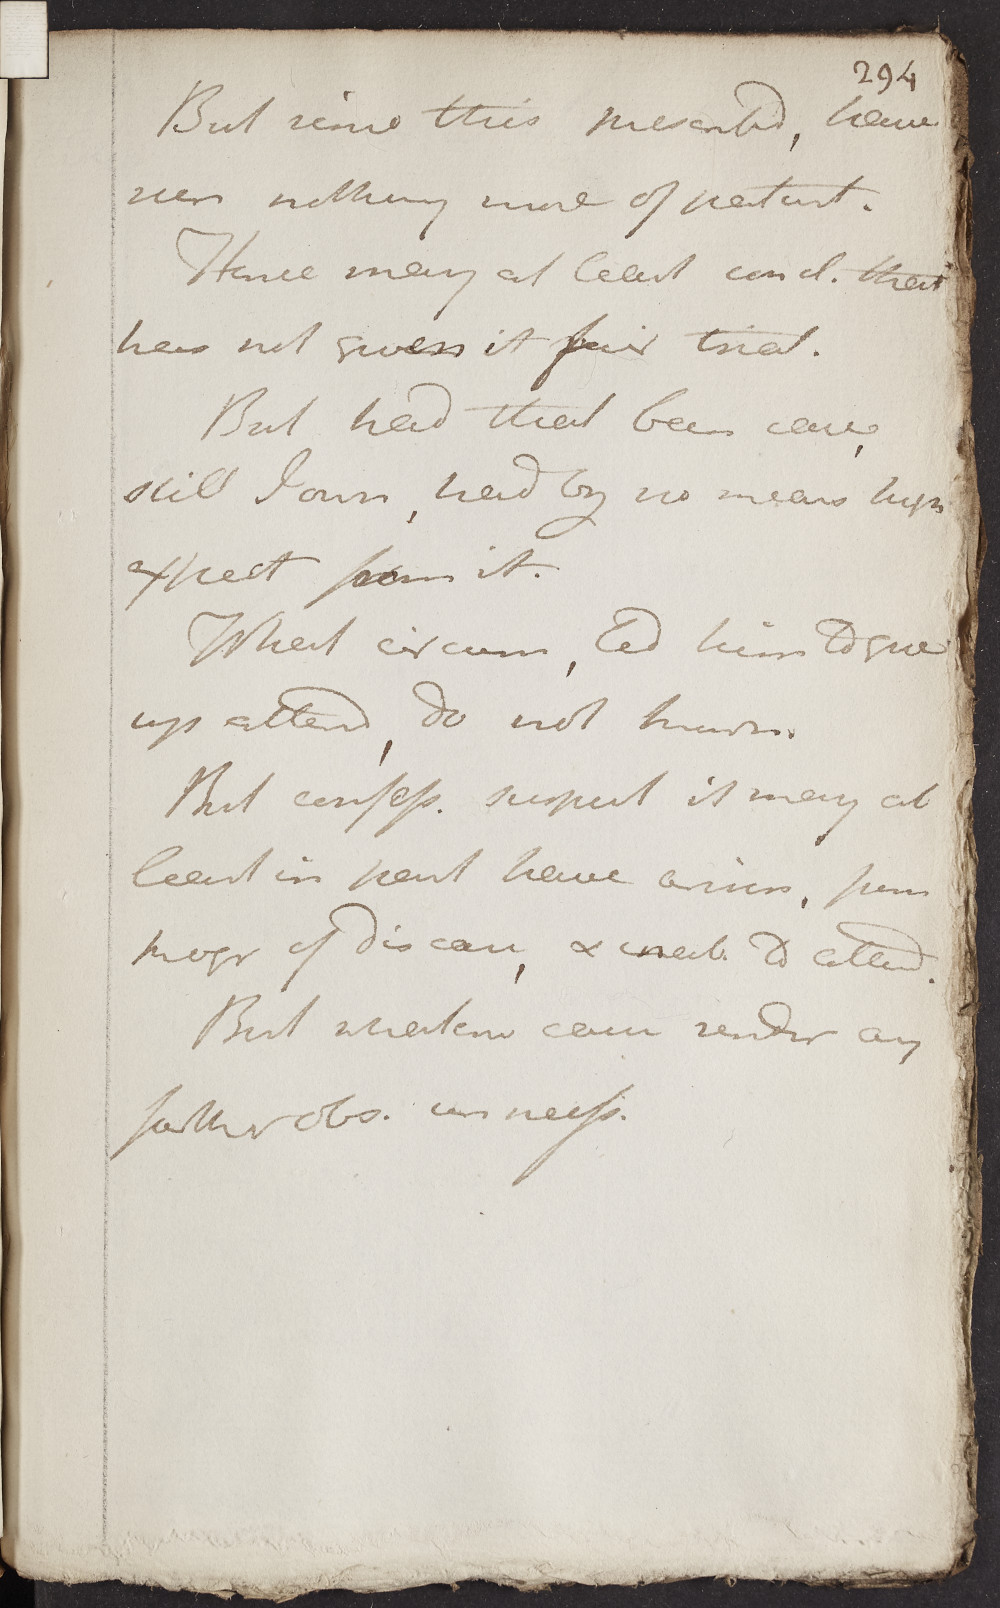 294
But since this prescribd, have
seen nothing more of patient.
Hence may at least concl. that
has not given it fair trial.
But had that been case,
still I own, had by no means high
expect from it.
What circum, led him to give
up attend, do not know.
But confess. suspect it may at
least in part have arisen, from
progr of disease, & inab. to attend.
But whatever cause render any
farther obs. unness.